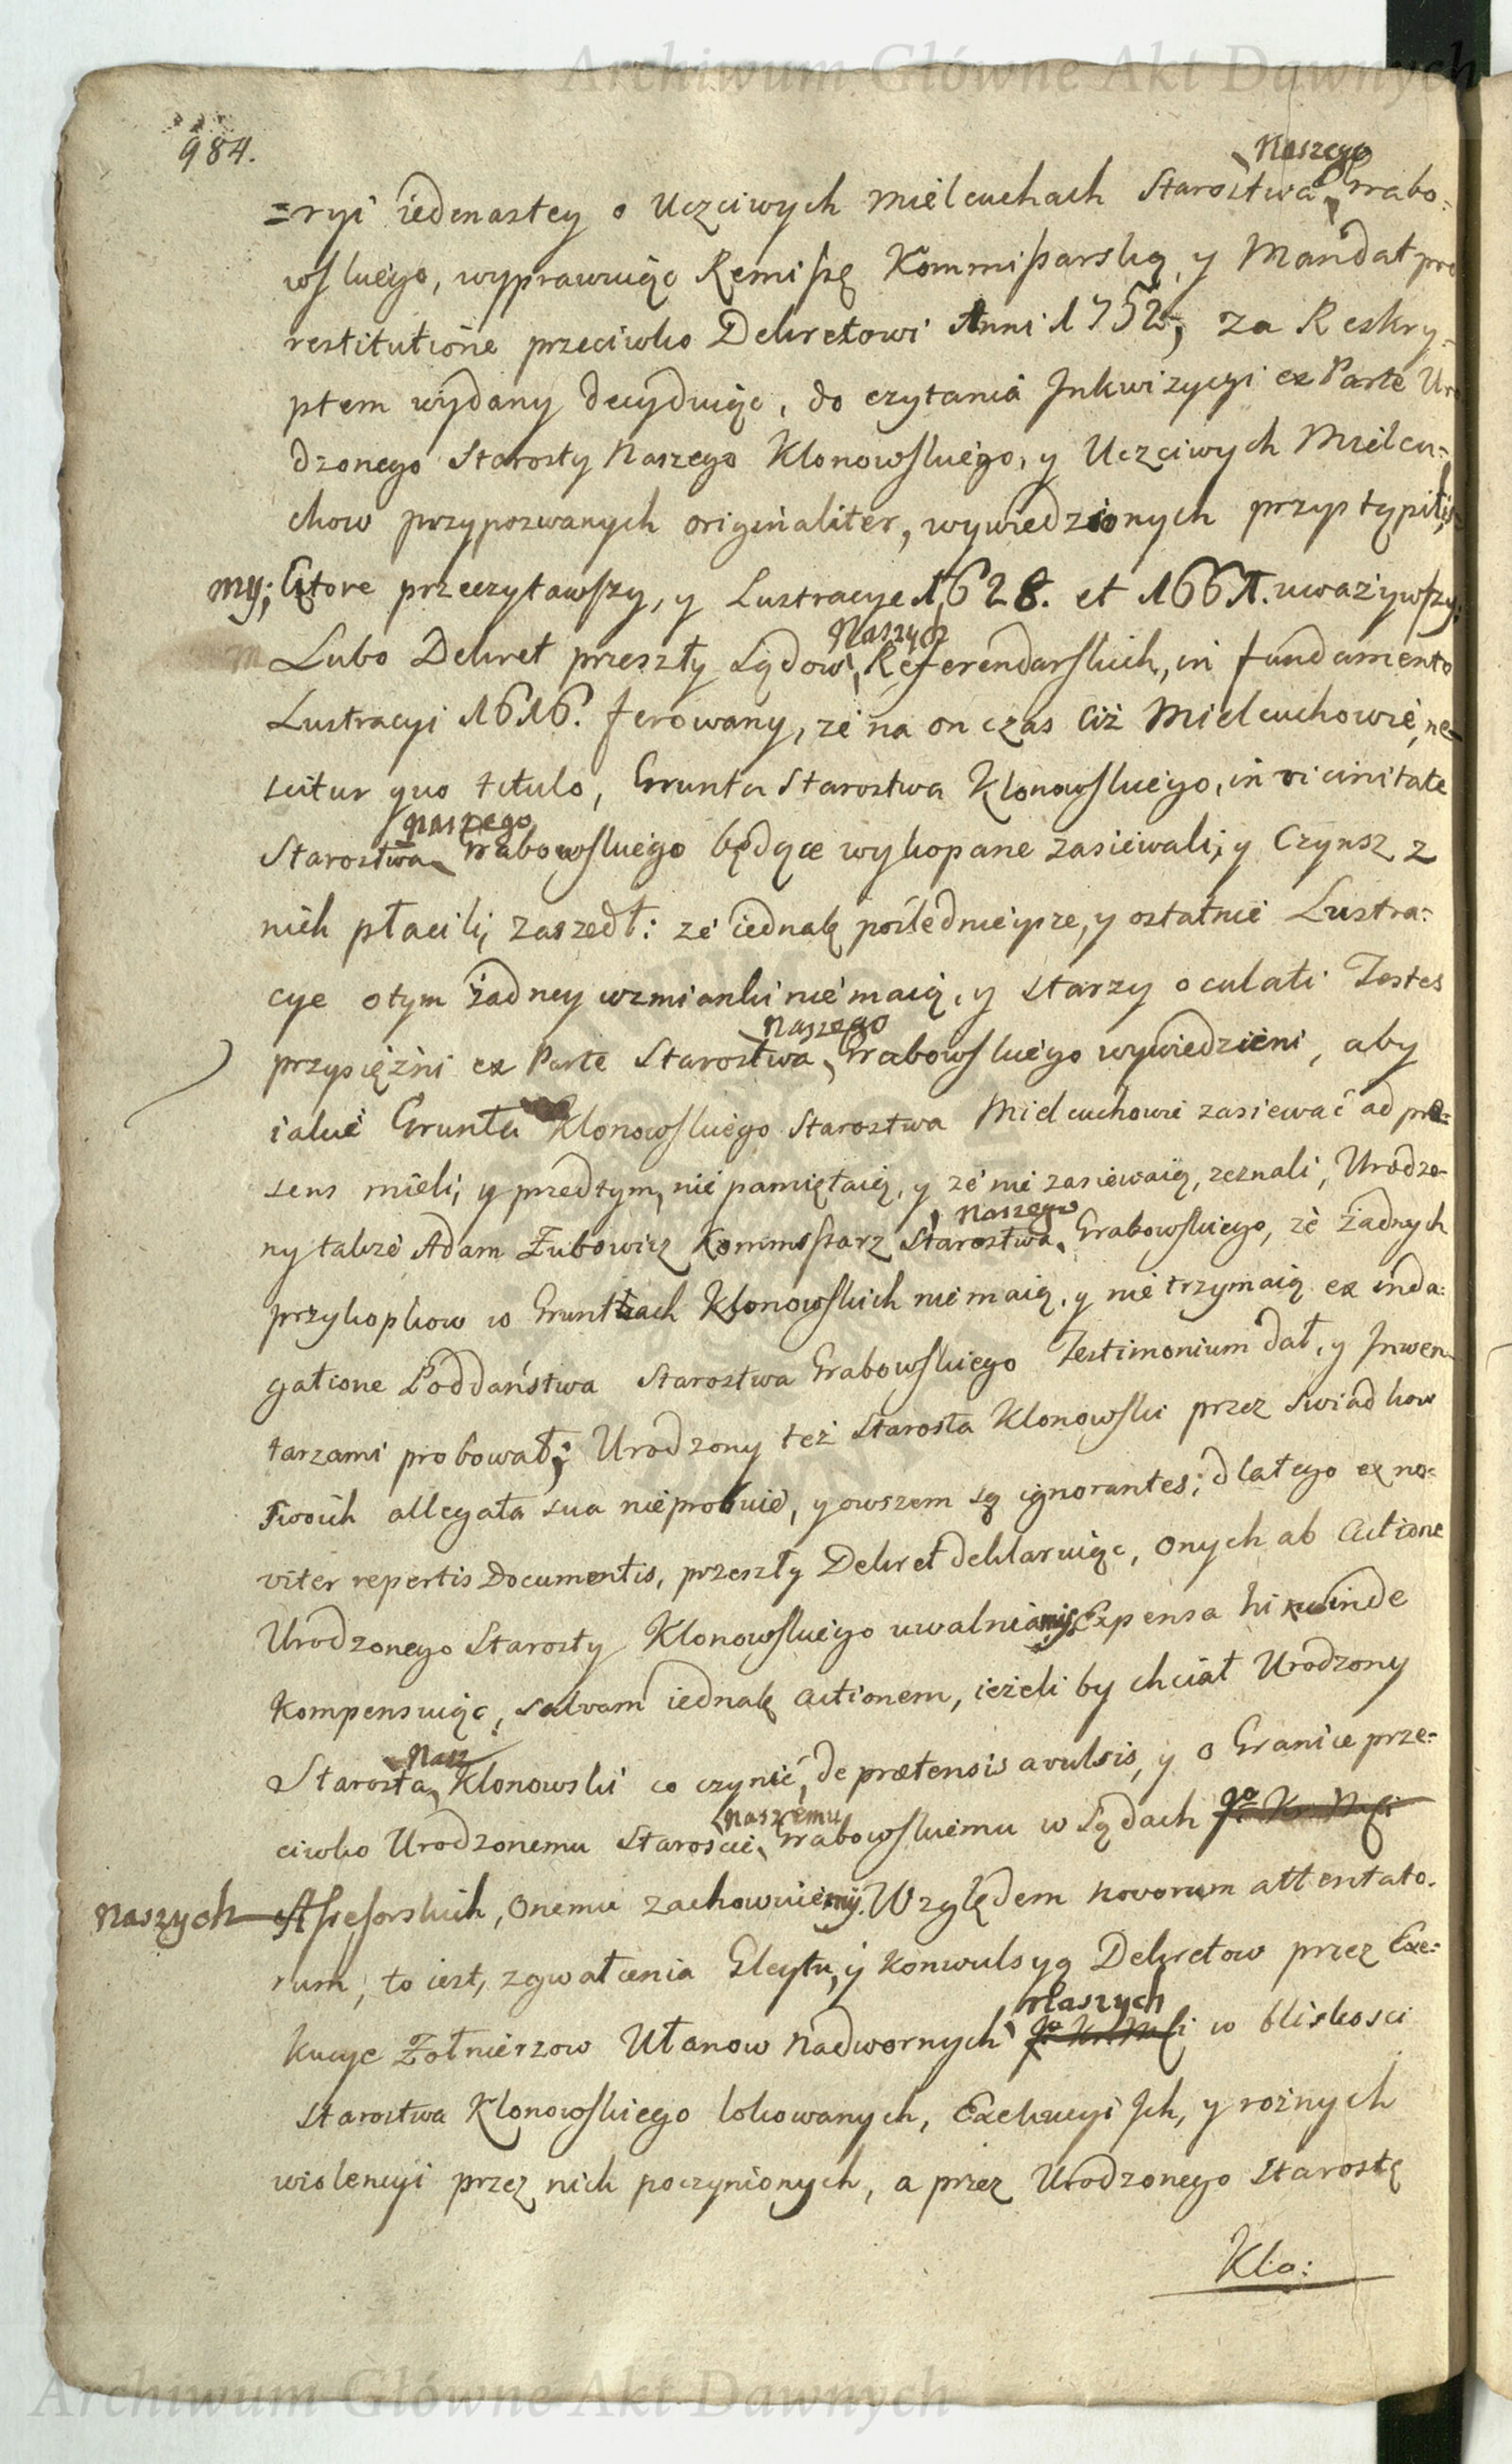 Archiwum Główne Akt Dawnych
984.
Naszego
=ryi iedenastey o Uczciwych Mielcuchach Starostwa Grabo:
wskiego, wyprawuiąc Remissę Kommissarską, y Mandat pro
restitutione przeciwko Dekretowi Anni 1752, za Reskry-
ptem wydany decyduiąc, do czytania Inkwizycyi ex Parte Uro
dzonego Starosty Naszego Klonowskiego, y Uczciwych Mielcu-
chow przypozwanych originaliter, wywiedzionych przystąpili
my; Ktore przeczytawszy, y Lustracye 1628. et 1661. uważywszy:
Naszych
Lubo Dekret przeszły Sądow Referendarskich, in fundamento
Lustracyi 1616. ferowany, że na on czas ciż Mielcuchowie, ne-
scitur quo titulo, Grunta Starostwa Klonowskiego, in vicinitate
Naszego
Starostwa Grabowskiego będące wykopane zasiewali, y Czynsz z
nich płacili, zaszedł: że iednak poślednieysze, y ostatnie Lustra:
cye o tym żadney wzmianki nie maią, y starzy oculati Testes
Naszego
przysiężni ex Parte Starostwa Grabowskiego wywiedzieni, aby
iakie Grunta Klonowskiego Starostwa Mielcuchowie zasiewać ad præ-
sens mieli, y przedtym, nie pamiętaią, y że nie zasiewaią, zeznali, Urodzo-
Naszego
ny także Adam Zubowicz Kommissarz Starostwa Grabowskiego, że żadnych
przykopkow w Gruntach Klonowskich nie maią, y nie trzymaią ex inda:
gatione Poddaństwa Starostwa Grabowskiego Testimonium dał, y Inwen-
tarzami probował; Urodzony też Starosta Klonowski przez swiadkow
swoich allegata sua nie probuie, y owszem są ignorantes; dlatego ex no:
viter repertis Documentis, przeszły Dekret deklaruiąc, onych ab actione
Urodzonego Starosty Klonowskiego uwalniamy, Expensa hincinde
kompensuiąc, salvam iednak actionem, ieżeli by chciał Urodzony
Nasz
Starosta Klonowski co czynić, de prætensis avulsis, y o Granice prze-
Naszemu
ciwko Urodzonemu Staroscie Grabowskiemu w Sądach
Naszych Assessorskich, onemu zachowuiemy. Względem novorum attentato.
rum, to iest, zgwałcenia Gleytu, y konwulsyą Dekretow przez Exe:
Naszych
kucye Zołnierzow Ułanow Nadwornych w bliskosci
Starostwa Klonowskiego lokowanych, Exekucyi Ich, y rożnych
wiolencyi przez nich poczynionych, a przez Urodzonego Starostę
Klo:
Archiwum Główne Akt Dawnych